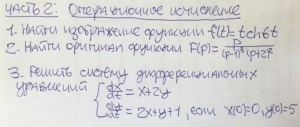 Часть 2: Операционное исчисление
1. Найти изображение функции f(t)=tch6t
2. Найти оригинал функции F(p)= p/((p-1)³(p+2)²)
3. Решить систему дифференциальных
уравнений { dx/dt = x+2y
dy/dt = 2x+y+1, если x(0)=0, y(0)=5